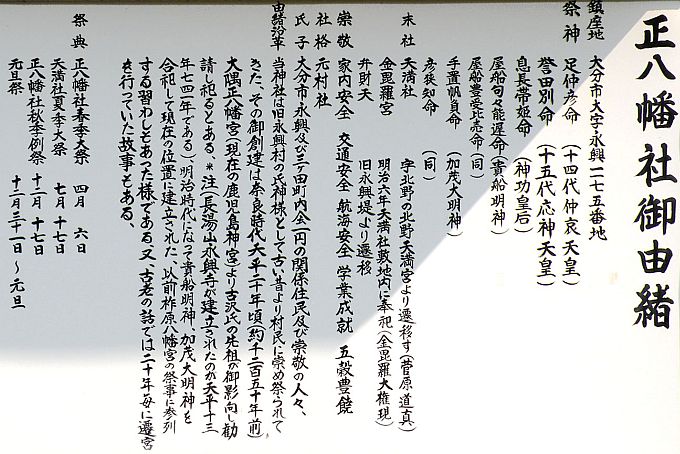 正八幡社御由緒
鎮座地 大分市大字永興一二七五番地
祭神 足仲彦命(十四代仲哀天皇)
誉田別命(十五代応神天皇)
息長帯姫命(神功皇后)
屋船句々能遅命(貴船明神)
屋船豊受比売命(同)
手置帆負命(加茂大明神)
彦狭知命(同)
末社 天満社 字北野の北野天満宮より遷移す(菅原道真)
金毘羅宮 明治六年天満社敷地内に奉祀(金毘羅大権現)
弁財天 旧永興堤より遷移
崇敬 家内安全 交通安全 航海安全 学業成就 五穀豊饒
社格 元村社
氏子 大分市永興及び三田町内会一円の関係住民及び崇敬の人々、
由緒沿革 当神社は旧永興村の氏神様として古い昔より村民に崇め祭られて
きた、その御創建は奈良時代天平二十年頃(約千二百五十年前)
大隅正八幡宮(現在の鹿児島神宮)より古沢氏の先祖が御影向し勧
請し祀るとある、*注(長湯山永興寺が建立されたのが天平十三
年七四一年である)、明治時代になって貴船明神、加茂大明神を
合祀して現在の位置に建立された、以前柞原八幡宮の祭事に参列
する習わしもあった様である、又、古老の話では二十年毎に遷宮
を行っていた故事もある、
祭典 正八幡社春季大祭 四月 六日
天満社夏季大祭 七月 十七日
正八幡社秋季例祭 十二月 十七日
元旦祭 十二月三十一日〜元旦